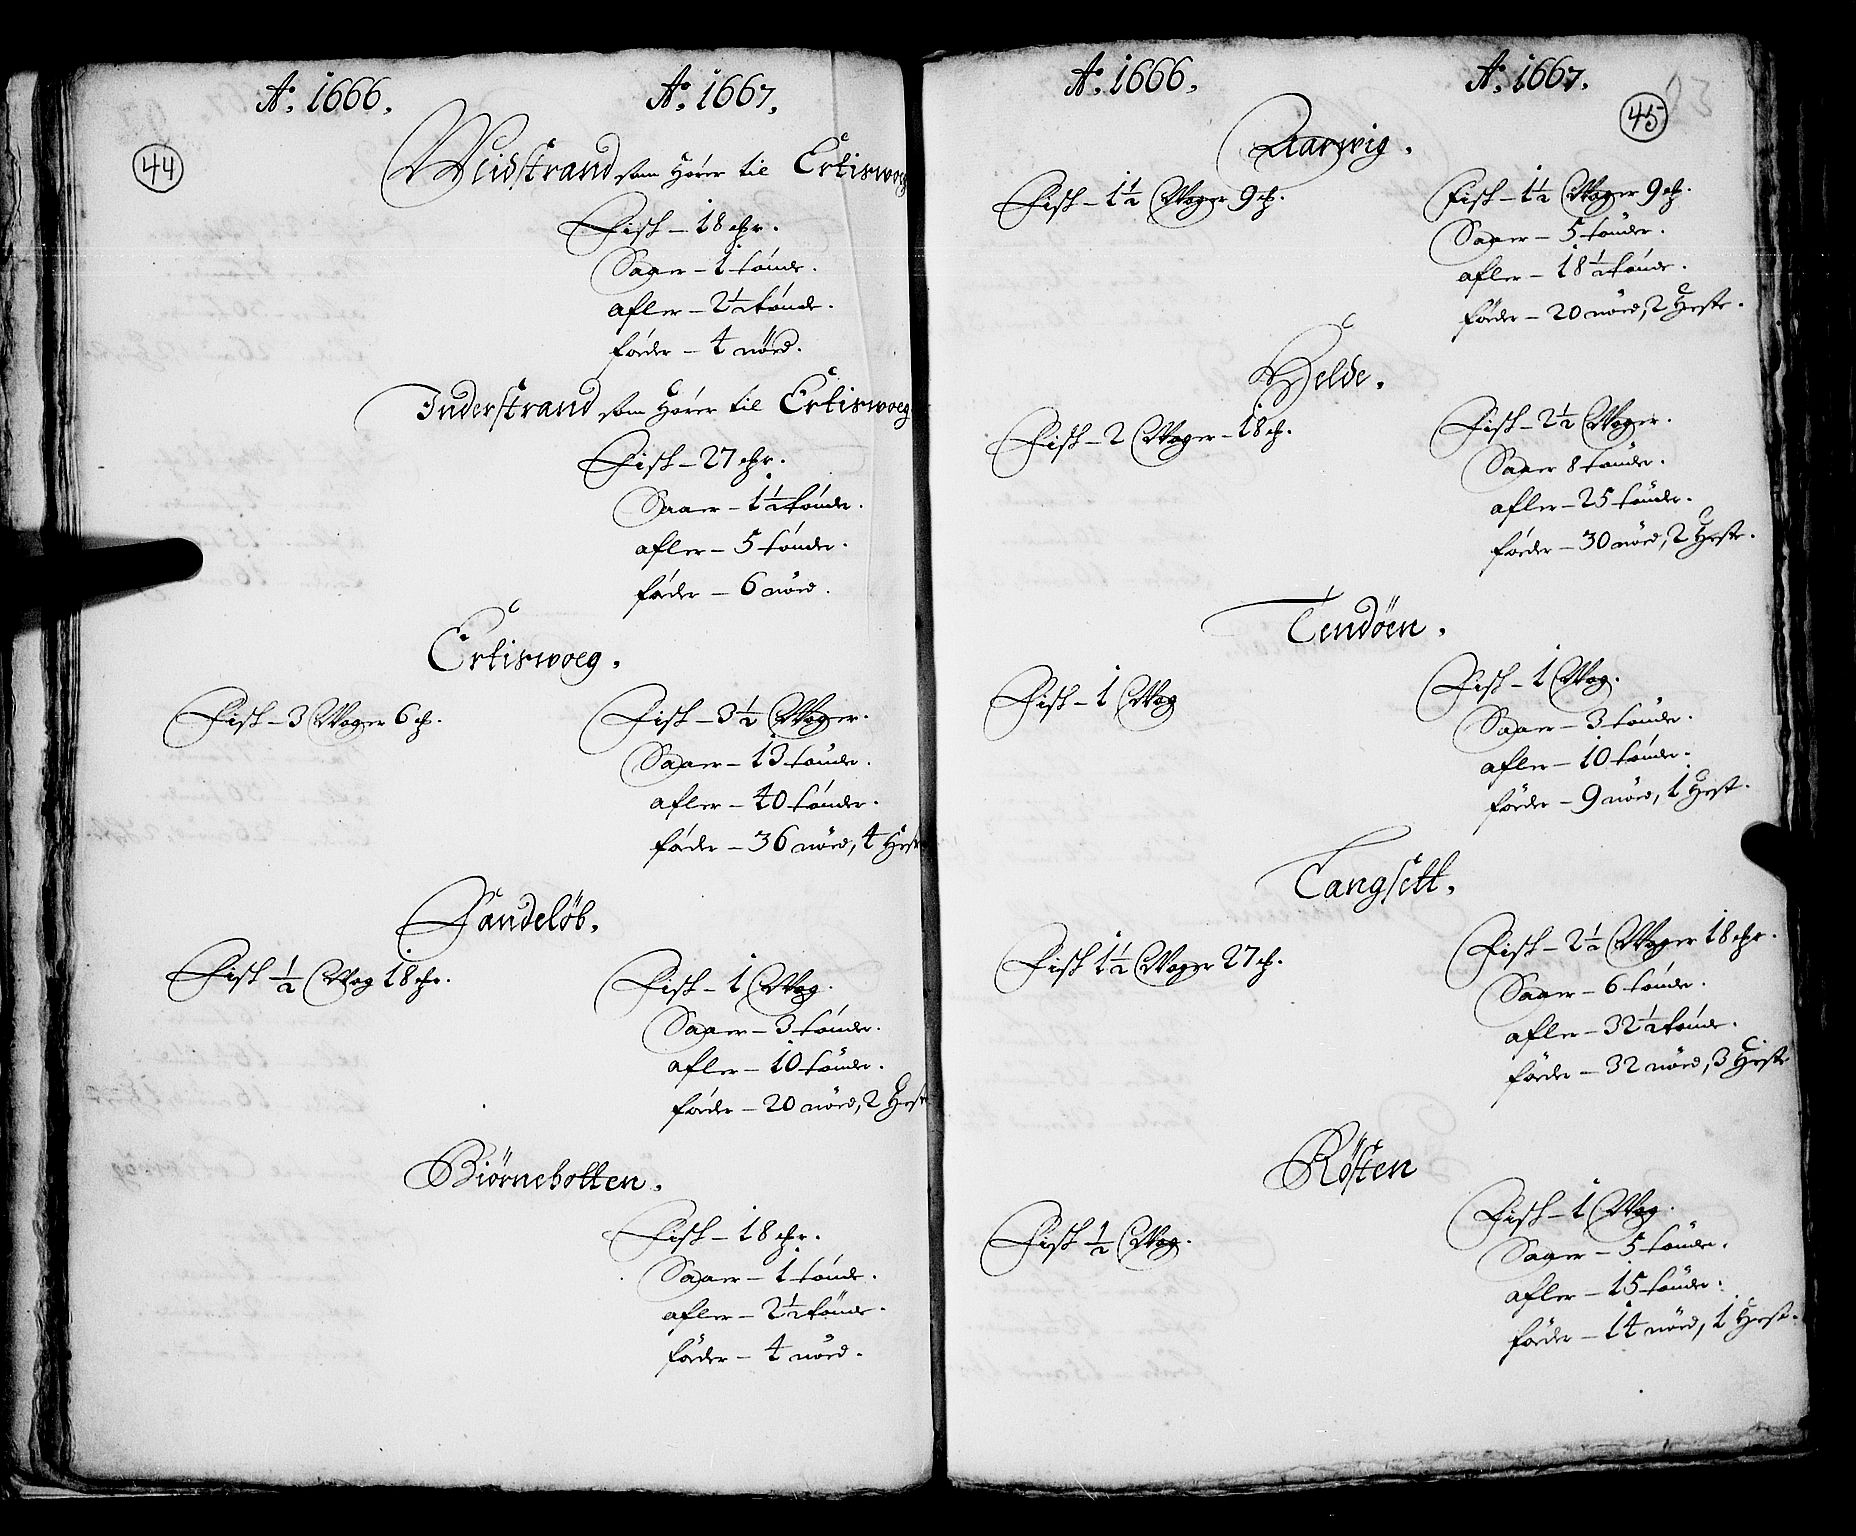 Ao. 1666. Ao. 1667.
44
Meidstrand som hører til Ertiswoeg
Fisk – 18 chr.
Saaer – 1 tønde.
afler – 2½ tønde.
føder – 4 nöed.
Inderstrand som hører til Ertiswoeg
Fisk – 27 chr.
Saaer – 1½ tønde.
afler – 5 tønder.
føder – 6 nöed.
Ertiswoeg.
Fisk – 3 Woger 6 ch. Fisk – 3½ Woger.
Saaer – 13 tønder.
afler – 40 tønder.
føder – 36 nöed, 4 Heste
Sandeløb.
Fisk ½ Wog 18 chr. Fisk – 1 Wog.
Saaer – 3 tønder.
afler – 10 tønder.
føder – 20 nöed, 2 Heste
Biørneholten.
Fisk – 18 chr.
Saaer – 1 tønde.
afler – 2½ tønde.
føder – 4 nöed.
Ao. 1666. Ao. 1667.
45
Aarwig.
Fisk – 1½ Woger 9 ch. Fisk – 1½ Woger 9 ch.
Saaer – 5 tønder.
afler – 18½ tønde.
føder – 20 nöed, 2 Heste.
Helde.
Fisk – 2 Woger – 18 ch. Fisk – 2½ Woger.
Saaer 8 tønder.
afler – 25 tønder.
føder – 30 nöed, 2 Heste.
Tendöen.
Fisk – 1 Wog Fisk – 1 Wog.
Saaer – 3 tønder.
afler – 10 tønder.
føder – 9 nöed, 1 Hest.
Tangsett.
Fisk 1½ Woger 27 ch. Fisk – 2½ Woger 18 chr.
Saaer – 6 tønder.
afler – 32½ tønde.
føder – 32 nöed, 3 Heste
Rösten
Fisk ½ Wog. Fisk – 1 Wog.
Saaer – 5 tønder.
afler – 15 tønder.
føder – 14 nöed, 1 Hest.